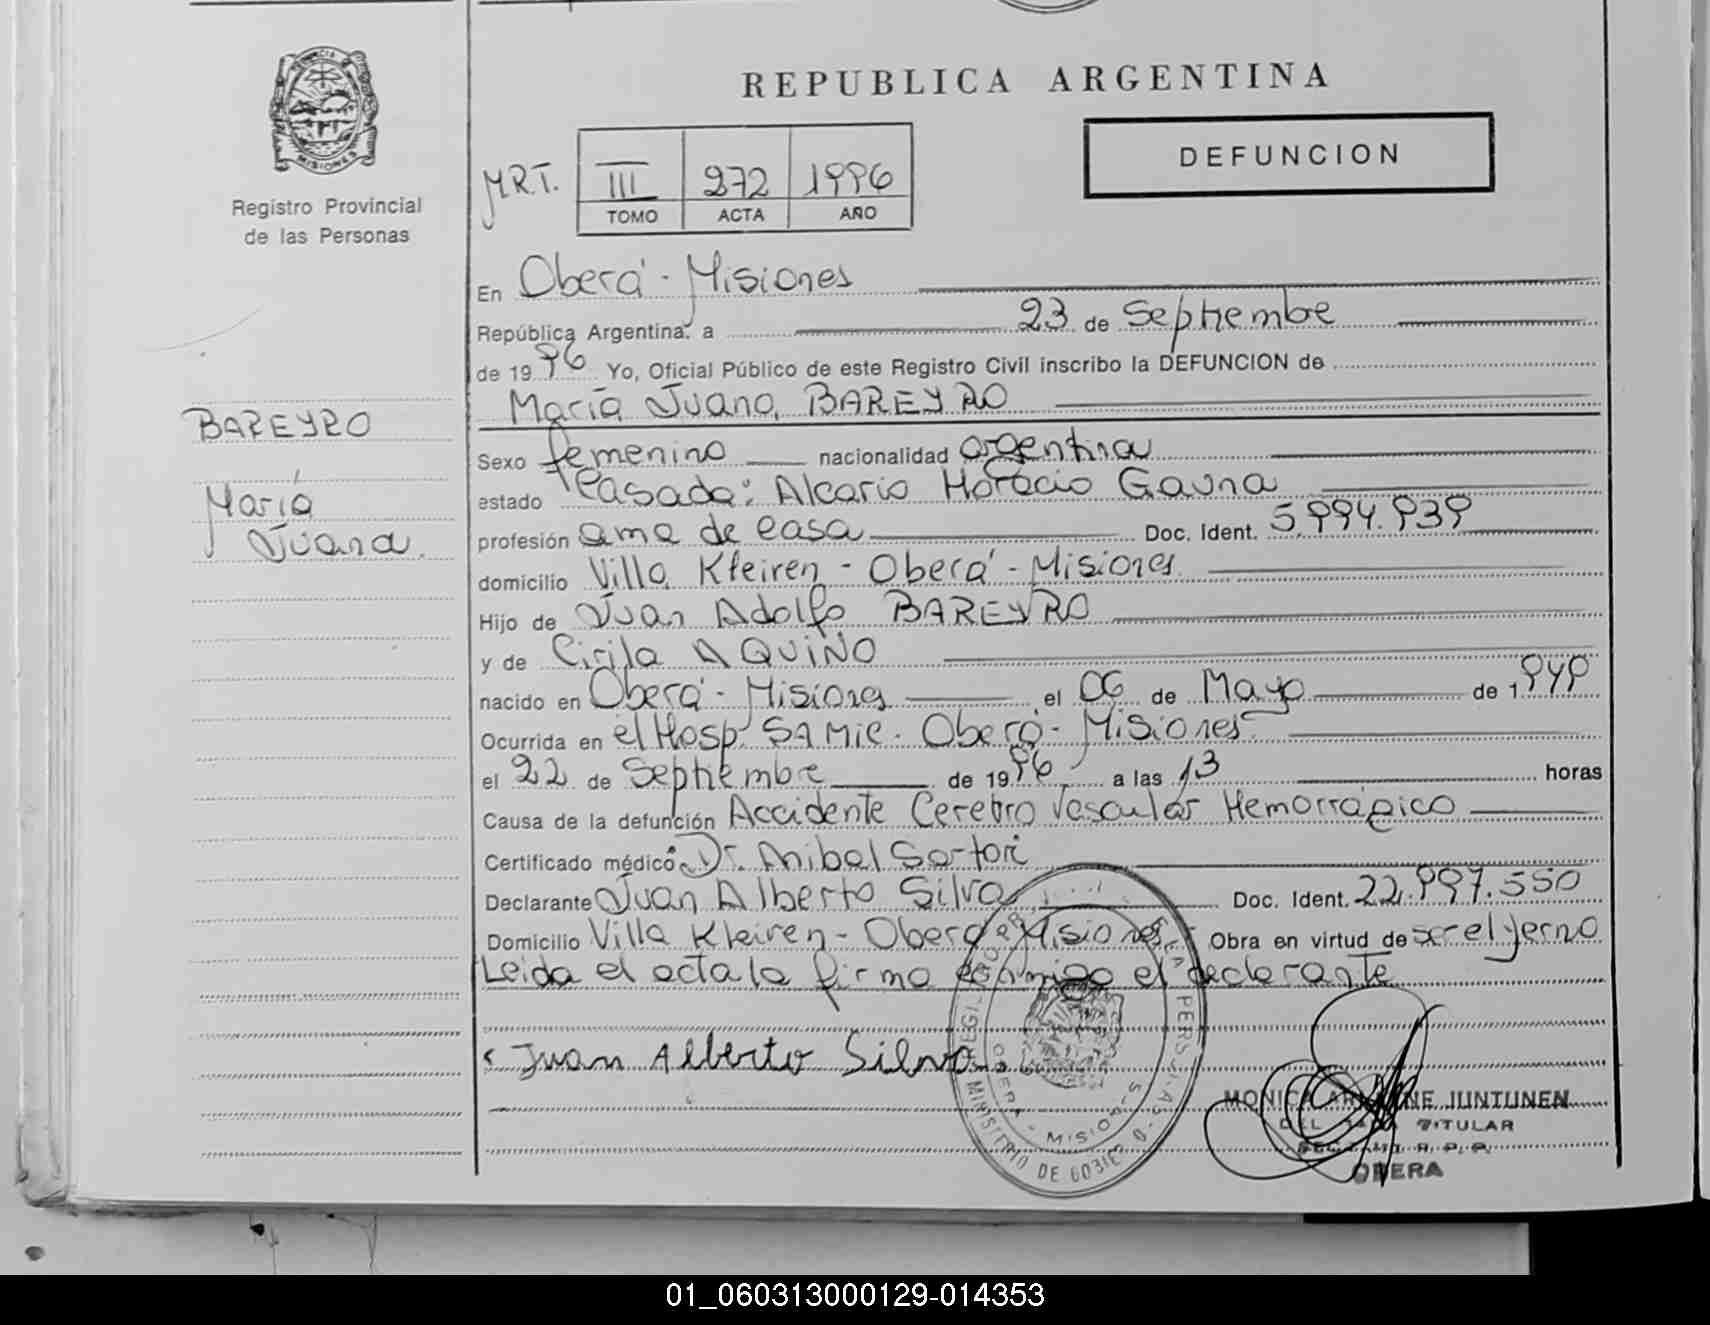 PROVINCIA DE
MISIONES
Registro Provincial
de las Personas
BAREYRO
María
Juana.
REPUBLICA ARGENTINA
DEFUNCION
M.R.T.
III 272 1996
TOMO ACTA AÑO
En Oberá - Misiones
República Argentina, a 23 de Septiembre
de 1996 Yo, Oficial Público de este Registro Civil inscribo la DEFUNCION de
María Juana BAREYRO
Sexo femenino nacionalidad argentina
estado Casada: Alcario Horacio Gauna
profesión ama de casa Doc. Ident. 5.994.939
domicilio Villa Kleiren - Oberá - Misiones
Hijo de Juan Adolfo BAREYRO
y de Cirila AQUINO
nacido en Oberá - Misiones el 06 de Mayo de 1.949
Ocurrida en el Hosp. SAMIC. Oberá - Misiones
el 22 de Septiembre de 1996 a las 13 horas
Causa de la defunción Accidente Cerebro Vascular Hemorrágico
Certificado médico Dr. Anibal Sartori
Declarante Juan Alberto Silva Doc. Ident. 22.997.550
Domicilio Villa Kleiren - Oberá Misiones Obra en virtud de ser el yerno
Leida el acta la firma conmigo el declarante
Juan Alberto Silva
MINISTERIO DE GOBIERNO
OBERA - MISIONES
JUNTUNEN
TITULAR
OBERA
01_060313000129-014353